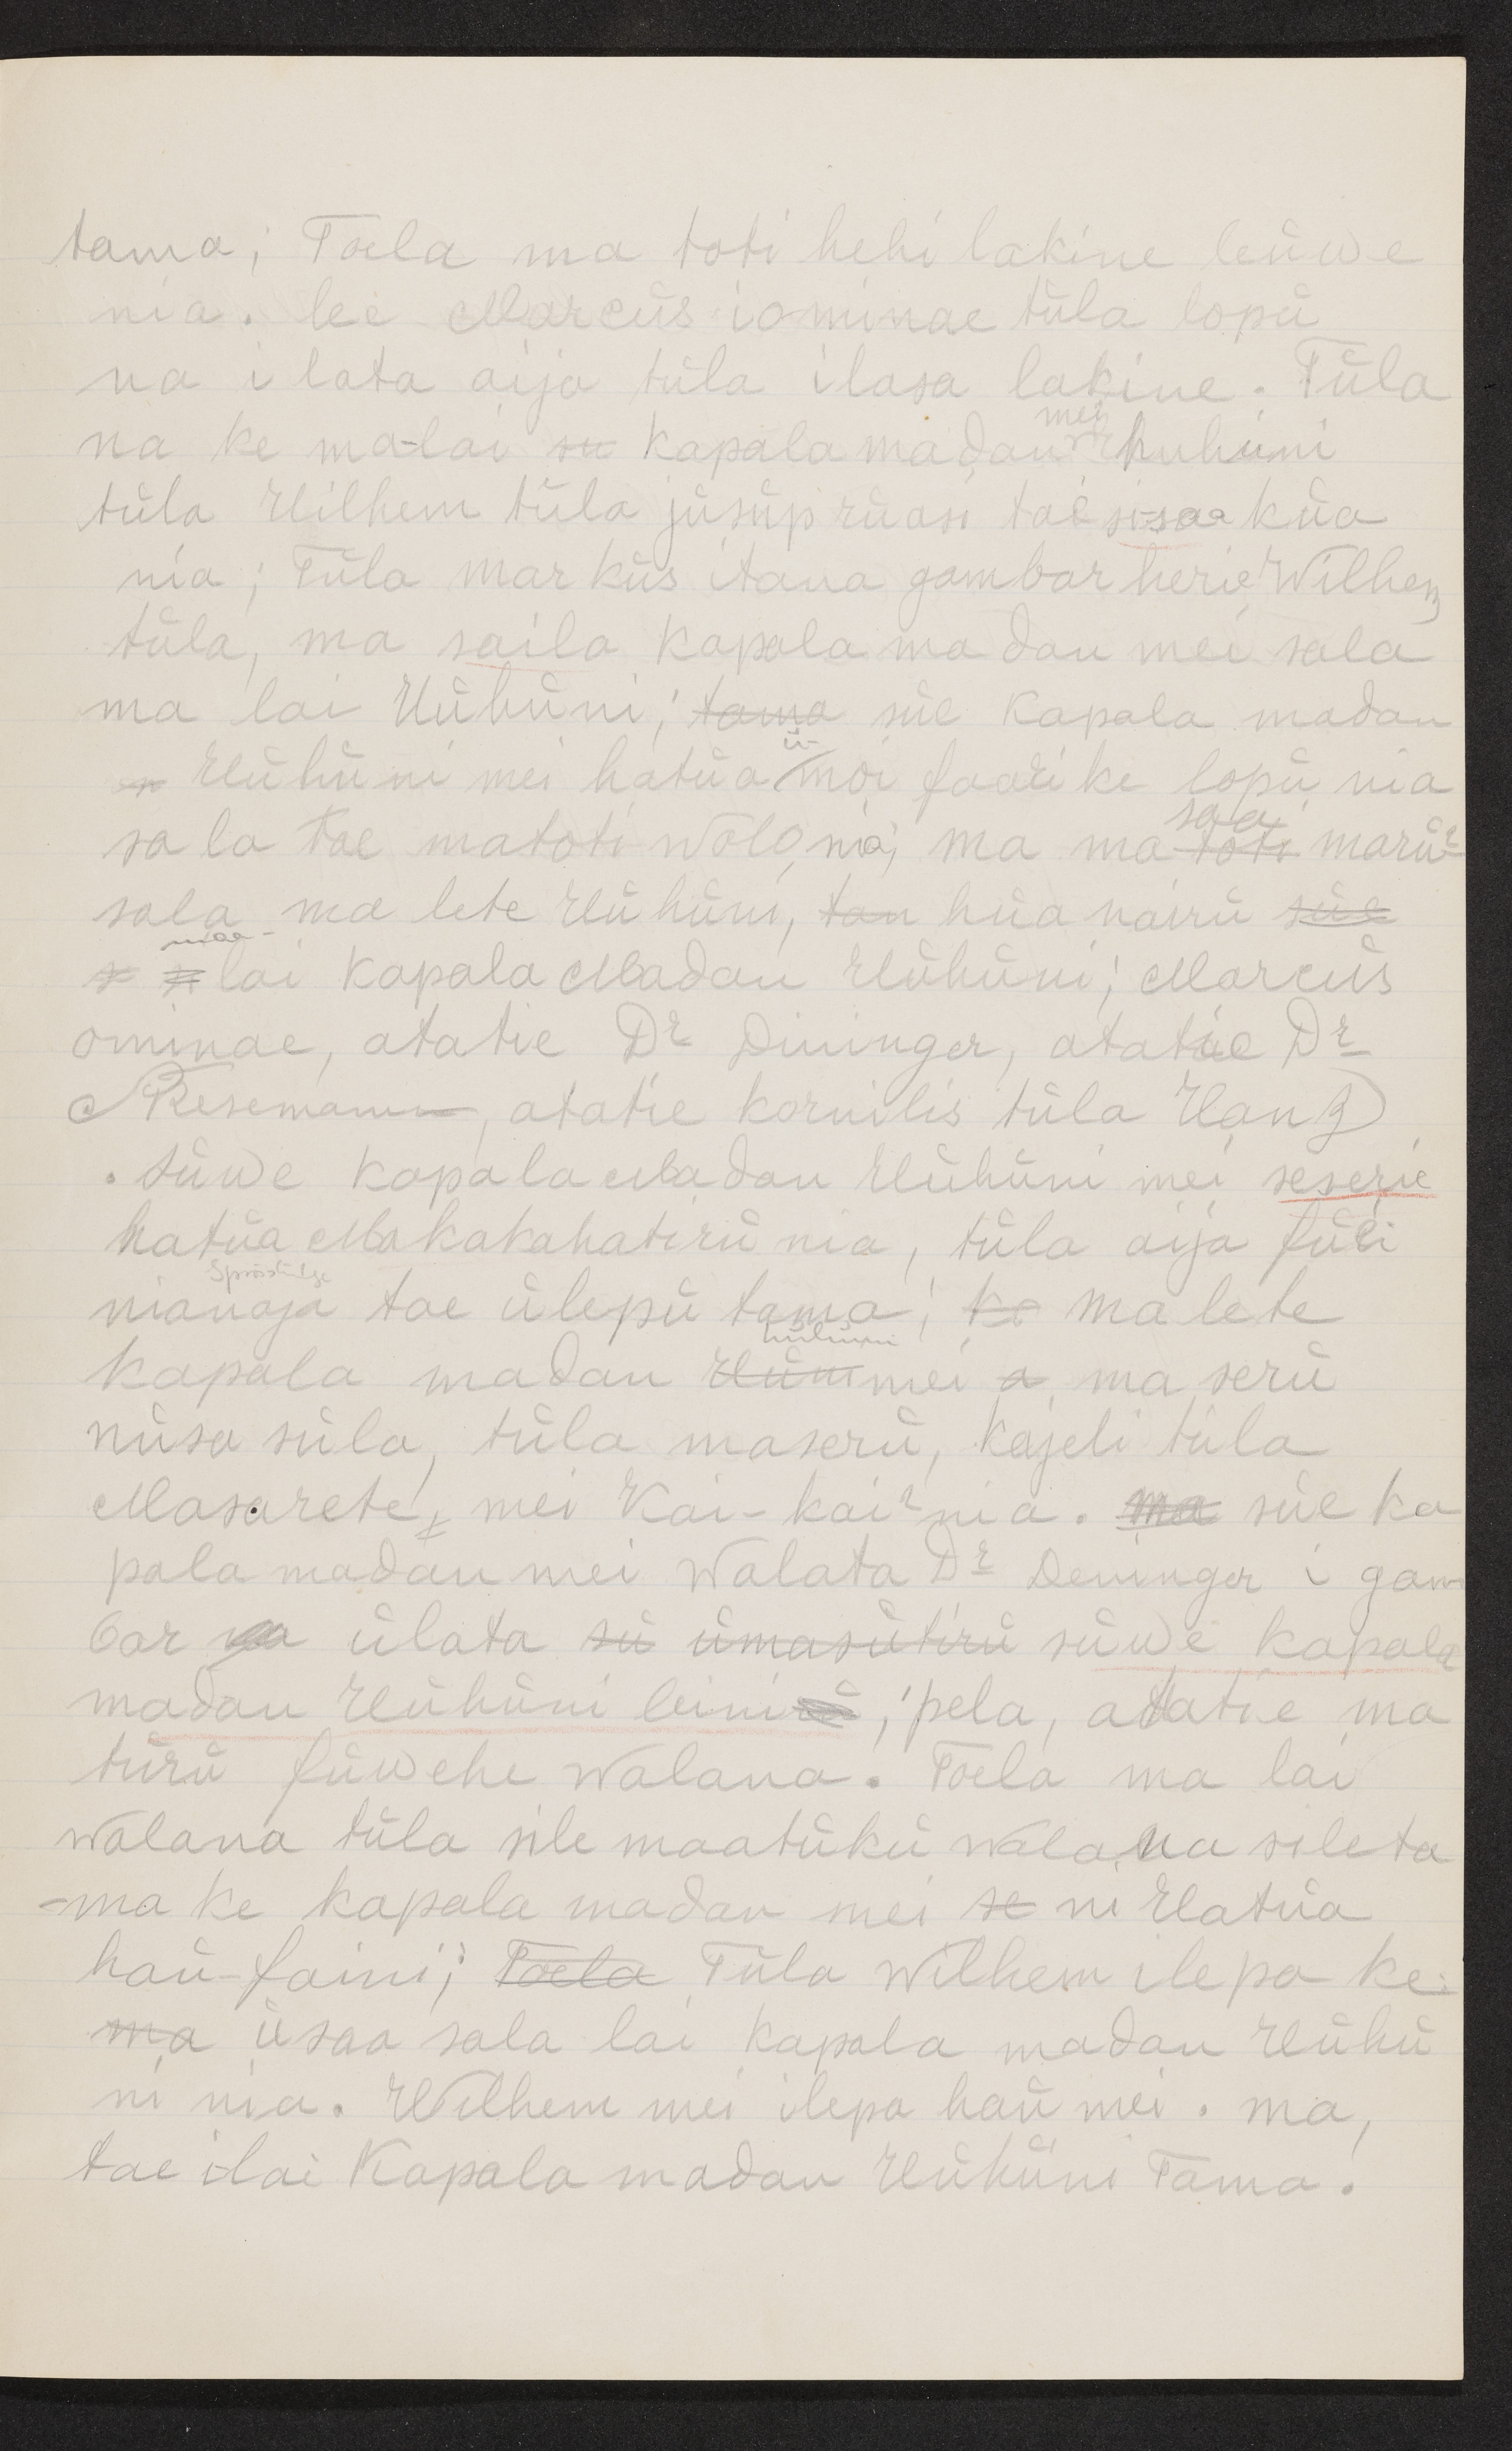 tama; Toela ma toti hehi lakine leüwe
nia. lee Marcüs iominae tüla lopü
na i lata aija tüla ilasa lakine. Tüla
na ke ma-lai su kapala madan mei huhüni
tüla Wilhem tüla jüsüp rüasi tae si-saa küa
nia; Tüla marküs itana gambar herie Wilhem
tüla, ma saila kapala madan mei sala
ma lai Hühüni; tama süe kapala madan
Hühüni mei hatüa ü moi faari ke lopü nia
sala tae matoti wolo nia; ma ma toti saa marü²
sala ma lete Hühüni, tan hüa nairü süe
lai kapala Madan Hühüni; Marcüs
ominae, atatie Dr Dininger, atatie Dr
Resemann, atatie kornilis tüla Hanz
. süwe kapala Madan Hühüni mei seserie
hatüa Makakahatirü nia, tüla aija füli
nianaja tae ülepü tama; ke ma lete
kapala madan Hüni hühüni mei a ma serü
nüsa süla, tüla maserü, kajeli tüla
Masarete, mei Kai-kai² nia. ma süe ka
pala madan mei walata Dr Deninger i gam
bar ülata sü ümasütirü süwe kapala
madan Hühüni leini; pela, atatie ma
türü füwehe walana. Toela ma lai
walana tüla sile maatükü walana sileta
-ma ke kapala madan mei se ni Hatüa
haü-faini; Toela Tüla Wilhem ilepa ke
ma üsaa sala lai kapala madan Hühü
ni nia. Wilhem mei ilepa haü mei. ma,
tae ilai Kapala madan Hühüni Tama.